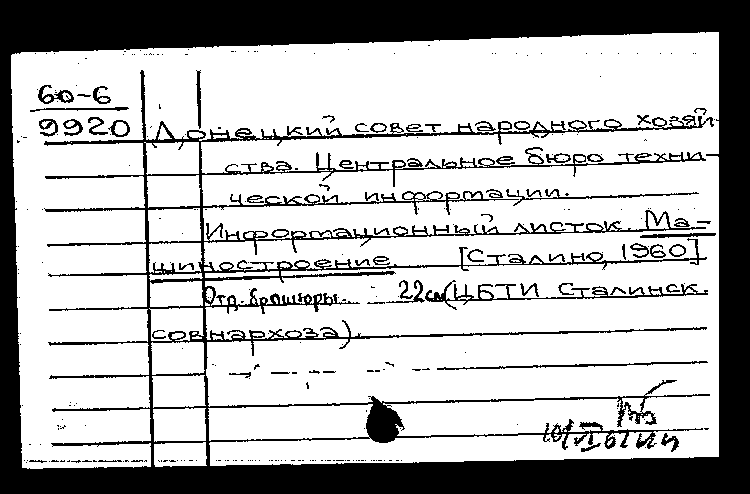 60-6
9920
Донецкий совет народного хозяй-
ства. Центральное бюро техни-
ческой информации.
Информационный листок. Ма-
шиностроение. [Сталино, 1960]
Отд. брошюры. 22см (ЦБТИ Сталинск.
совнархоза).